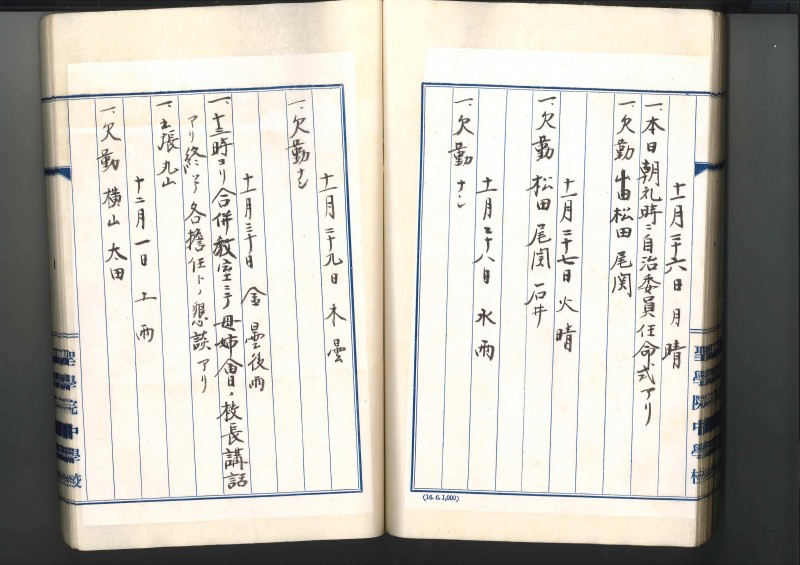 十一月二十六日 月 晴
一、本日朝礼時ニ自治委員任命式アリ
一、欠勤 松田 尾関
十一月二十七日 火 晴
一、欠勤 松田 尾関 石井
十一月二十八日 水 雨
一、欠勤 ナシ
(16. 6. 1,000)
十一月二十九日 木 曇
一、欠勤ナシ
十一月三十日 金 曇後雨
一、十三時ヨリ合併教室ニテ母姉会 校長講話
アリ終ッテ各担任トノ懇談アリ
一、出張 丸山
十二月一日 土 雨
一、欠勤 横山 太田
聖學院中學校